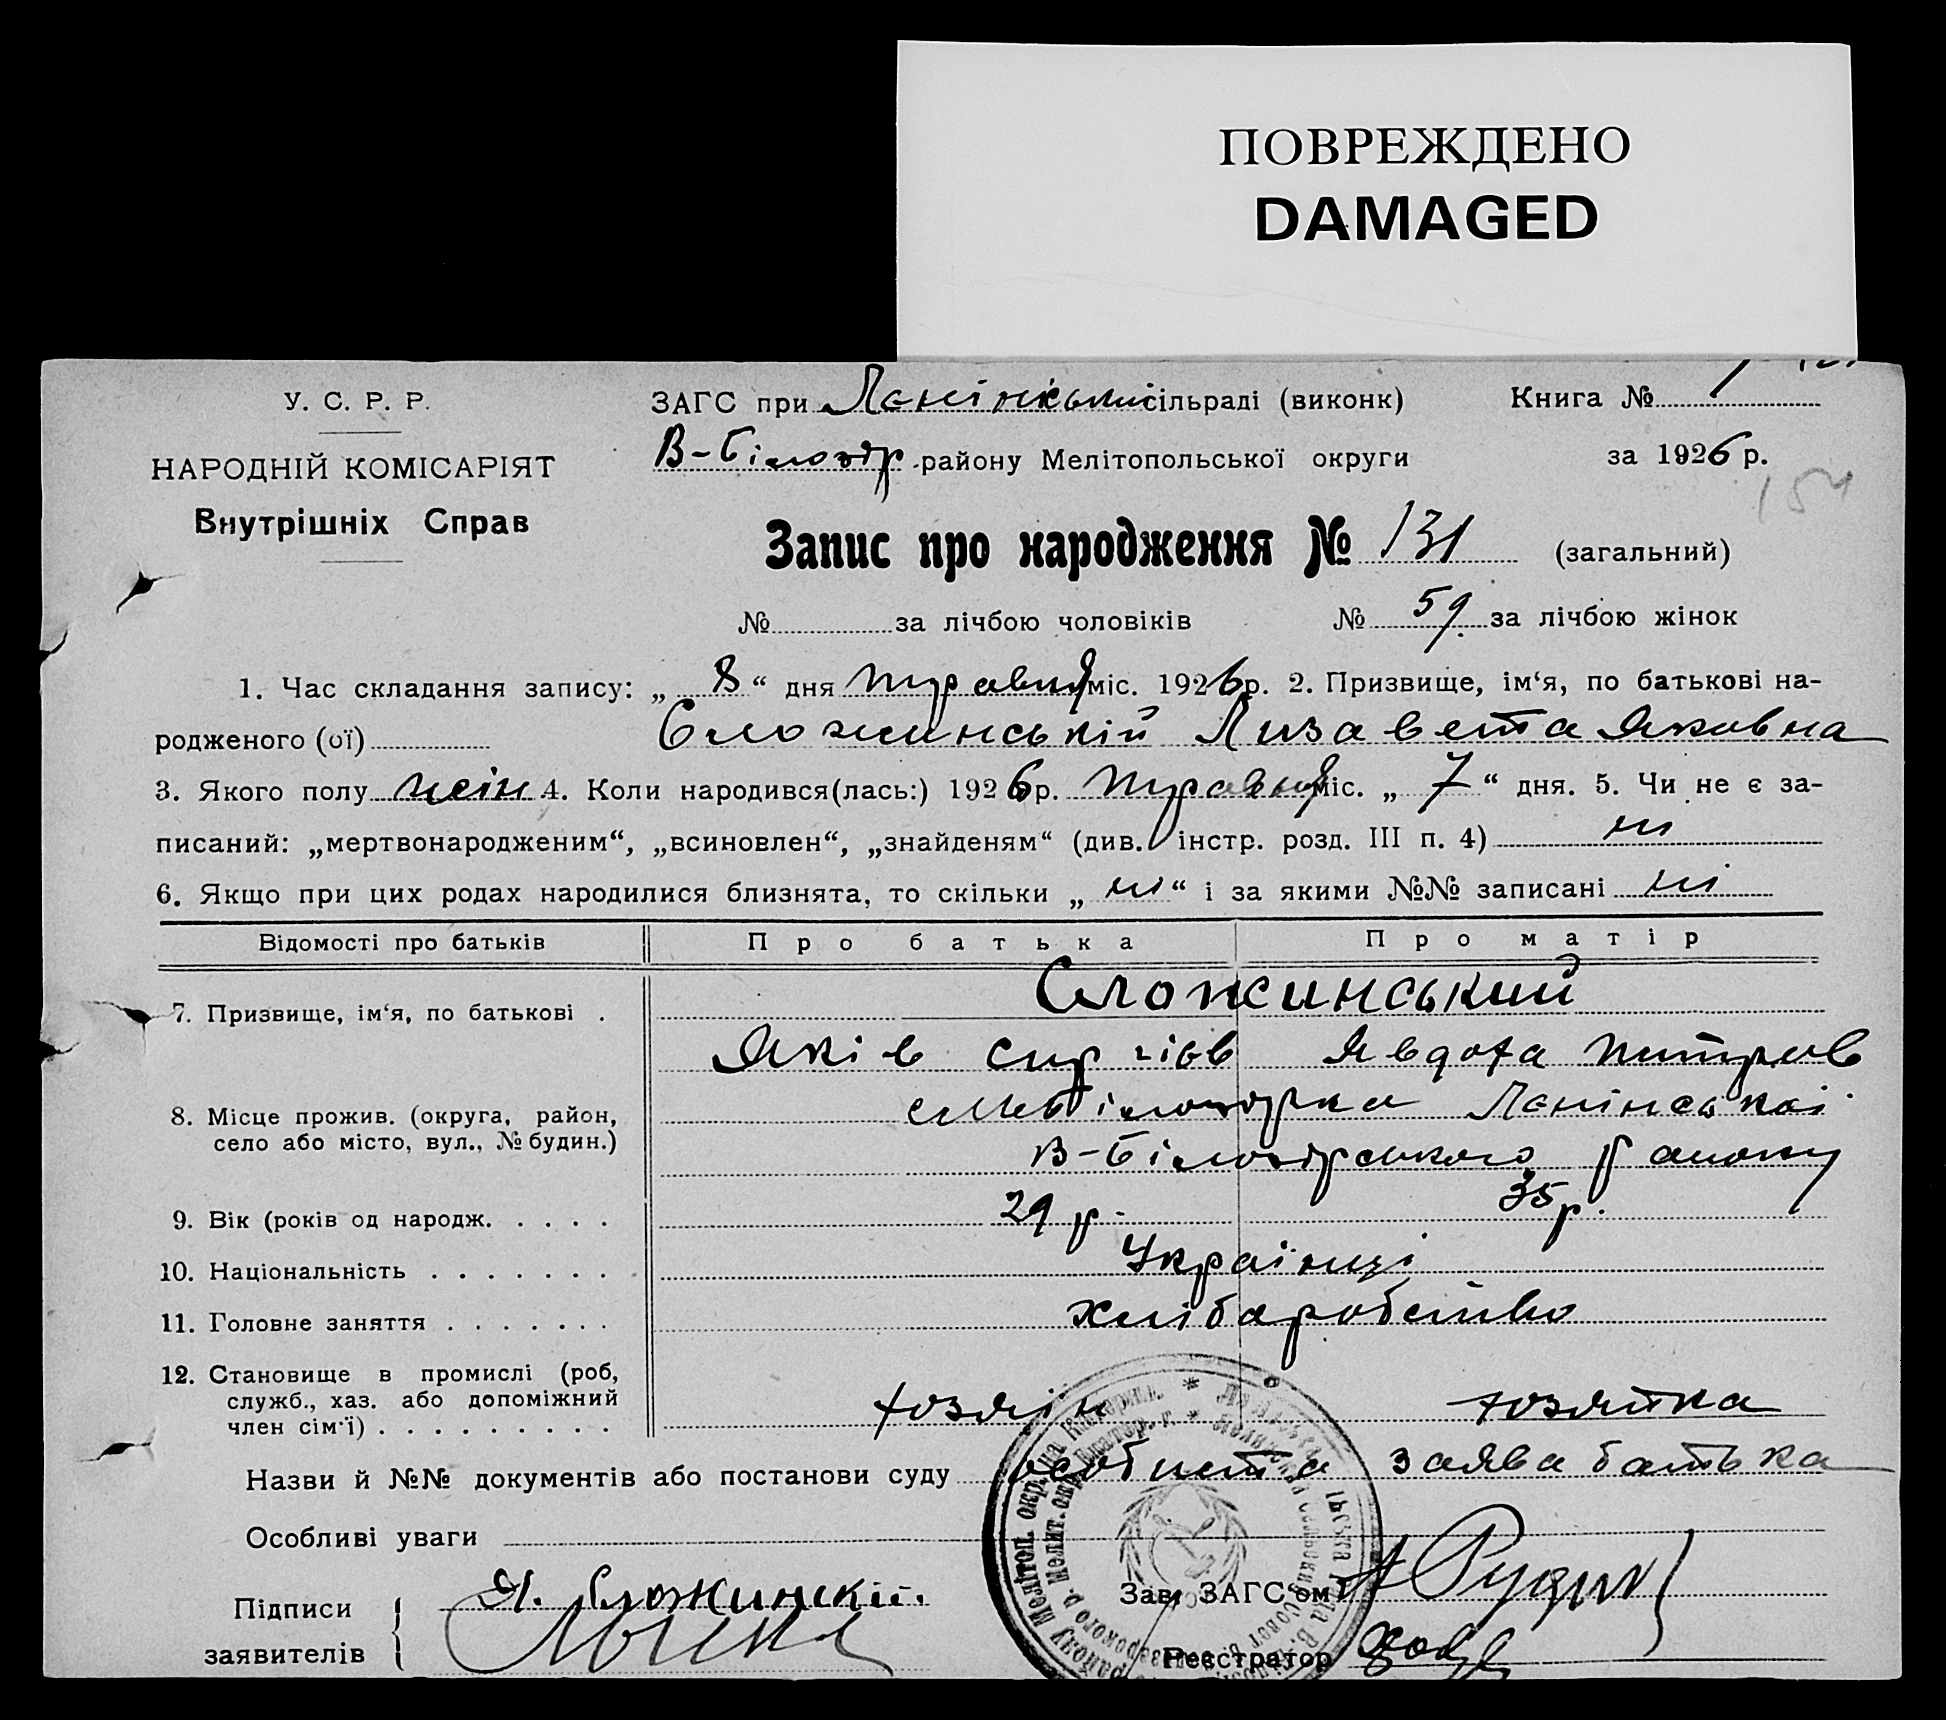 ПОВРЕЖДЕНО
DAMAGED
У. С. Р. Р.
НАРОДНІЙ КОМІСАРІЯТ
Внутрішніх Справ
ЗАГС при Лєнінській сільраді (виконк)
Книга № 1
В-Білозір. району Мелітопольської округи
за 1926 р.
154
Запис про народження № 131 (загальний)
№ за лічбою чоловіків № 59 за лічбою жінок
1. Час складання запису: „ 8 “ дня травня міс. 1926 р. 2. Призвище, ім‘я, по батькові на-
родженого (ої) Сложинській Лизавета Яковна
3. Якого полу жін 4. Коли народився(лась:) 1926 р. травня міс. „ 7 “ дня. 5. Чи не є за-
писаний: „мертвонародженим“, „всиновлен“, „знайденям“ (див. інстр. розд. III п. 4) ні
6. Якщо при цих родах народилися близнята, то скільки „ ні “ і за якими №№ записані ні
Відомості про батьків
Про батька
Про матір
7. Призвище, ім‘я, по батькові .
Сложинський
Яків Сиргієв Явдоха Питров
8. Місце прожив. (округа, район,
село або місто, вул., № будин.)
Лєнінської
В-Білозірського району
9. Вік (років од народж. . . . .
29 р. 35 р.
10. Національність . . . . . . .
Українці
11. Головне заняття . . . . . . .
хлібаробство
12. Становище в промислі (роб,
служб., хаз. або допоміжний
член сім‘ї) . . . . . . . . .
хозяїн хозяйка
Назви й №№ документів або постанови суду особиста заява батька
Особливі уваги
Підписи
заявителів
Я. Сложинскій.
Зав. ЗАГС‘ом
Реєстратор